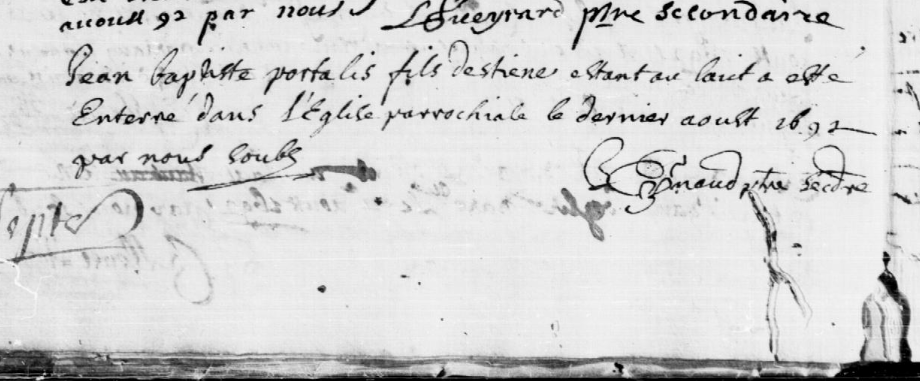 aoust 92 par nous L Gueyrard ptre secondaire
Jean baptiste portalis fils destiene estant au laict a esté
Enterré dans l'Eglise parrochiale le dernier aoust 1692
par nous soubs
ptre secdre